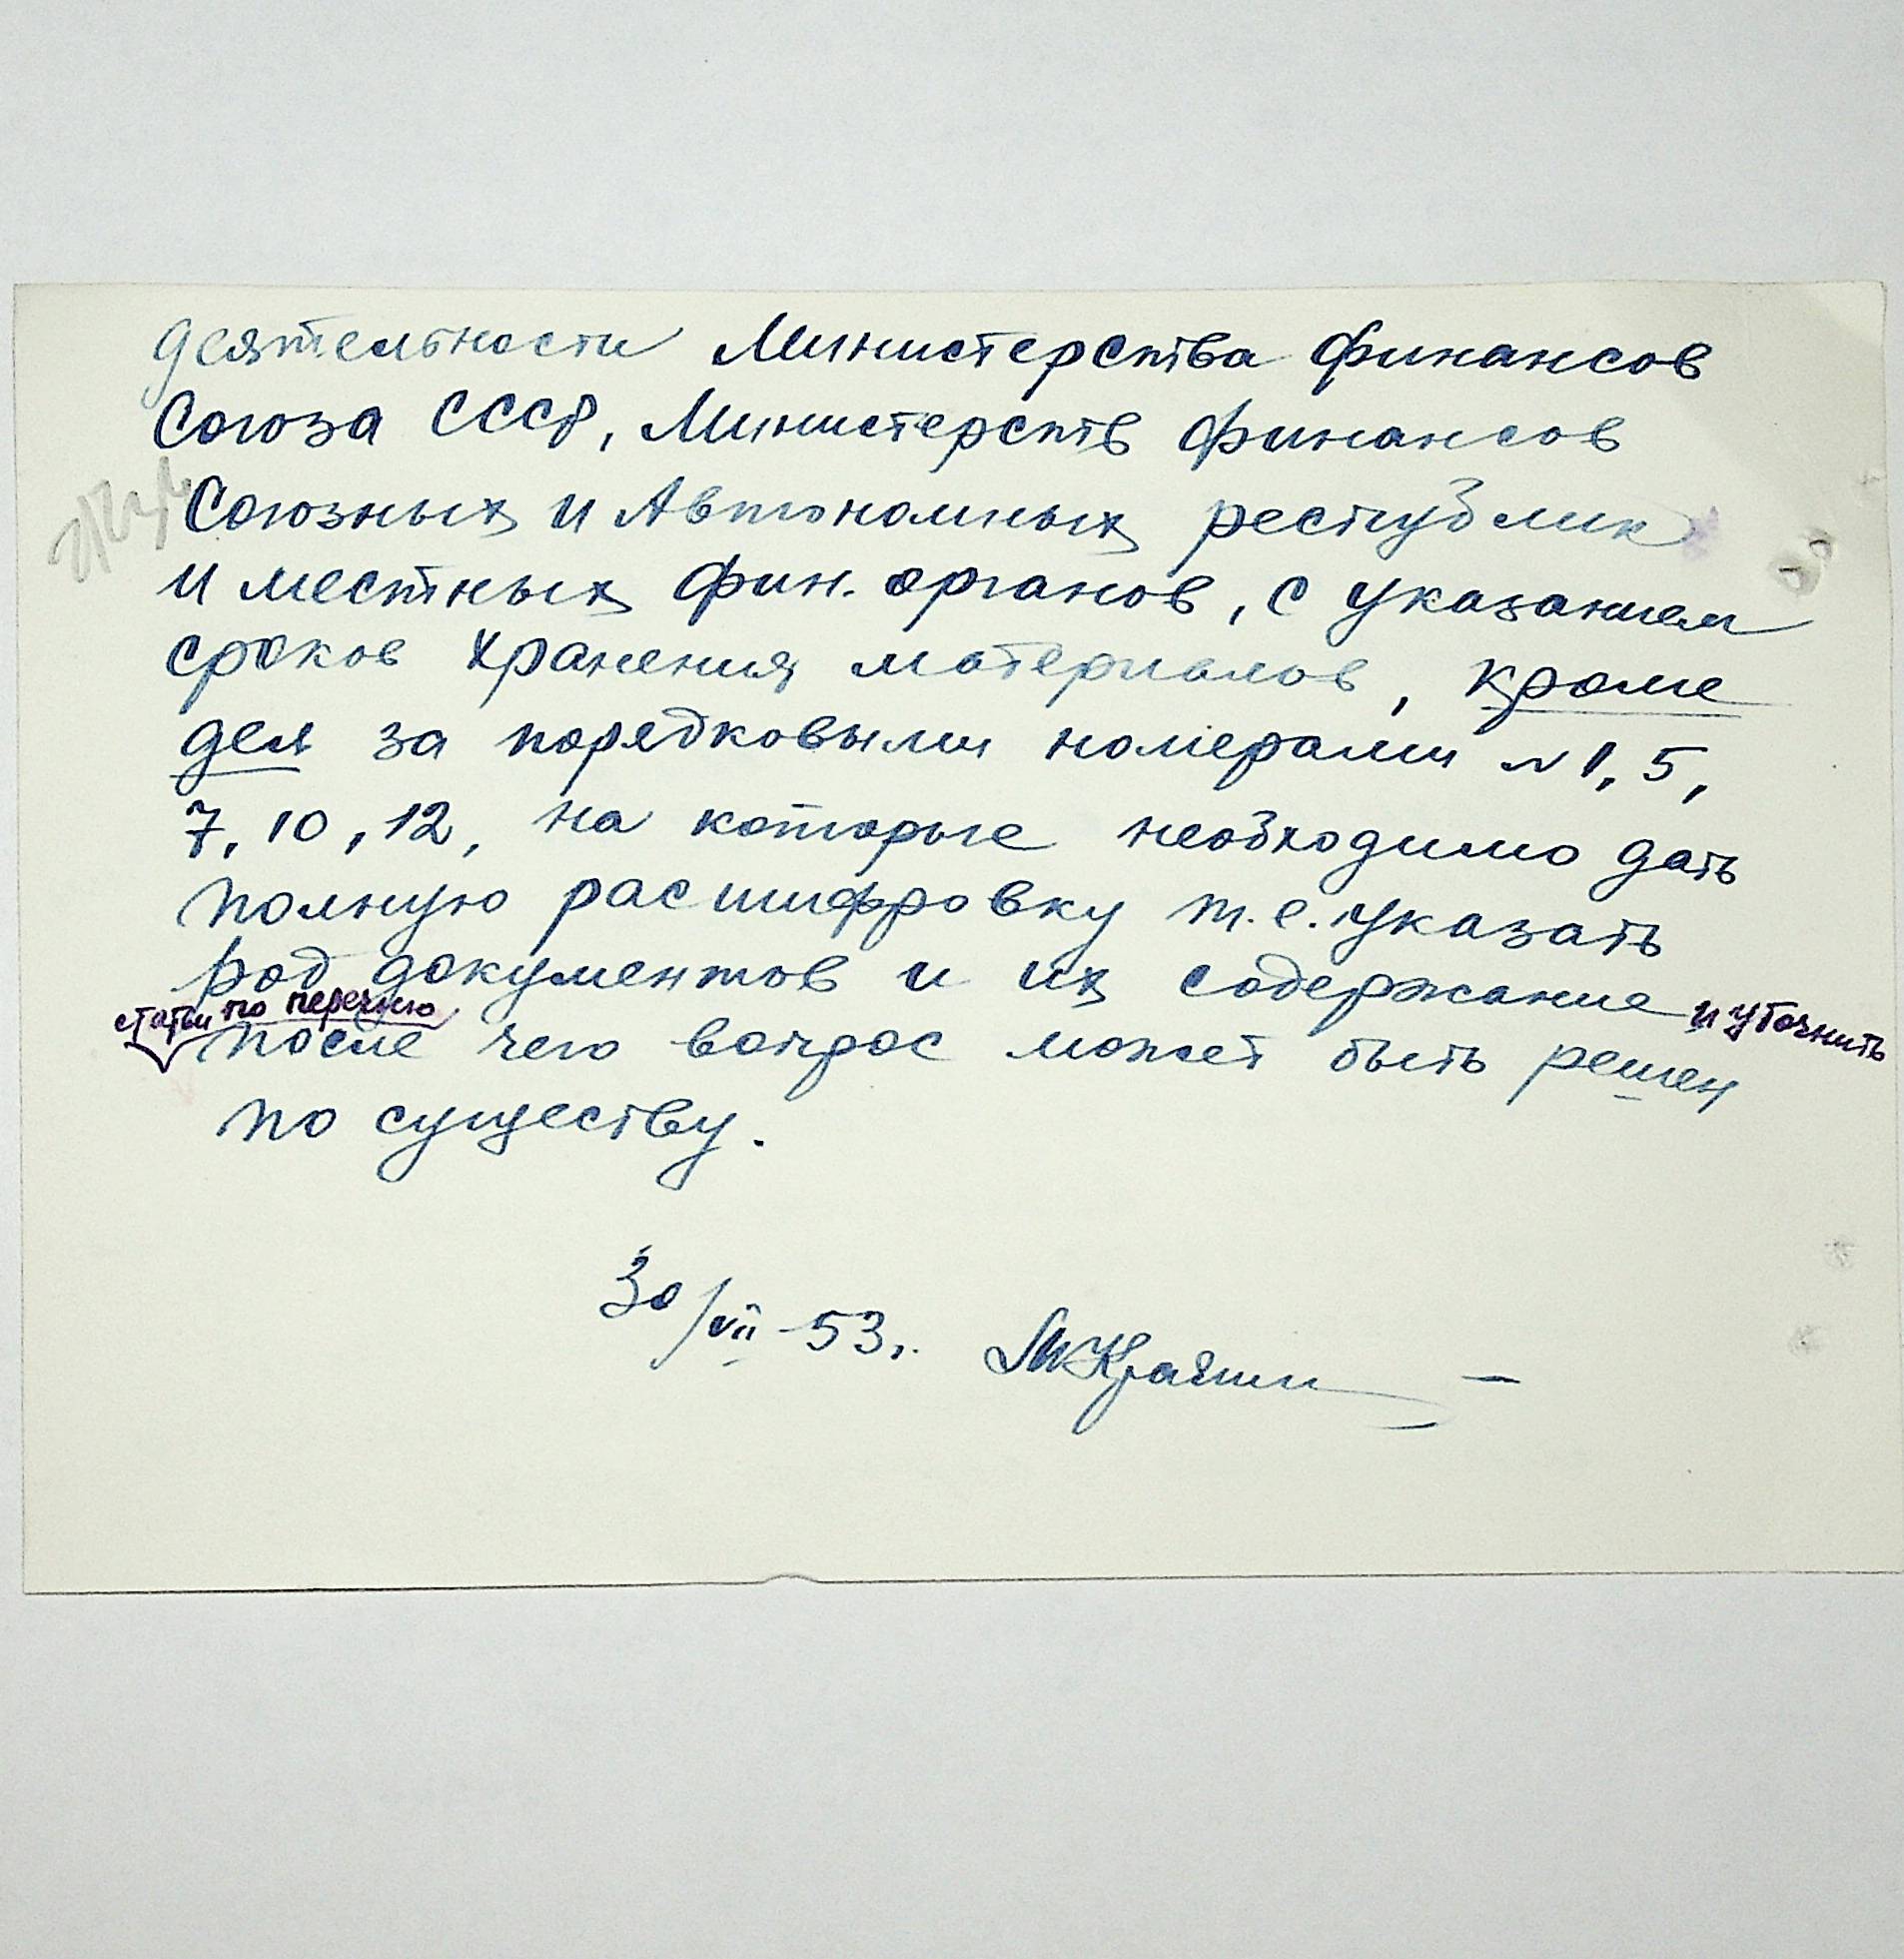 деятельности Министерства финансов
Союза СССР, Министерств финансов
Союзных и Автономных республик
и местных фин. органов, с указанием
сроков хранения материалов, кроме
дел за порядковыми номерами № 1, 5,
7, 10, 12, на которые необходимо дать
полную расшифровку т.е. указать
род документов и их содержание и уточнить
статьи по перечню
после чего вопрос может быть решен
по существу.
30/VII-53г.